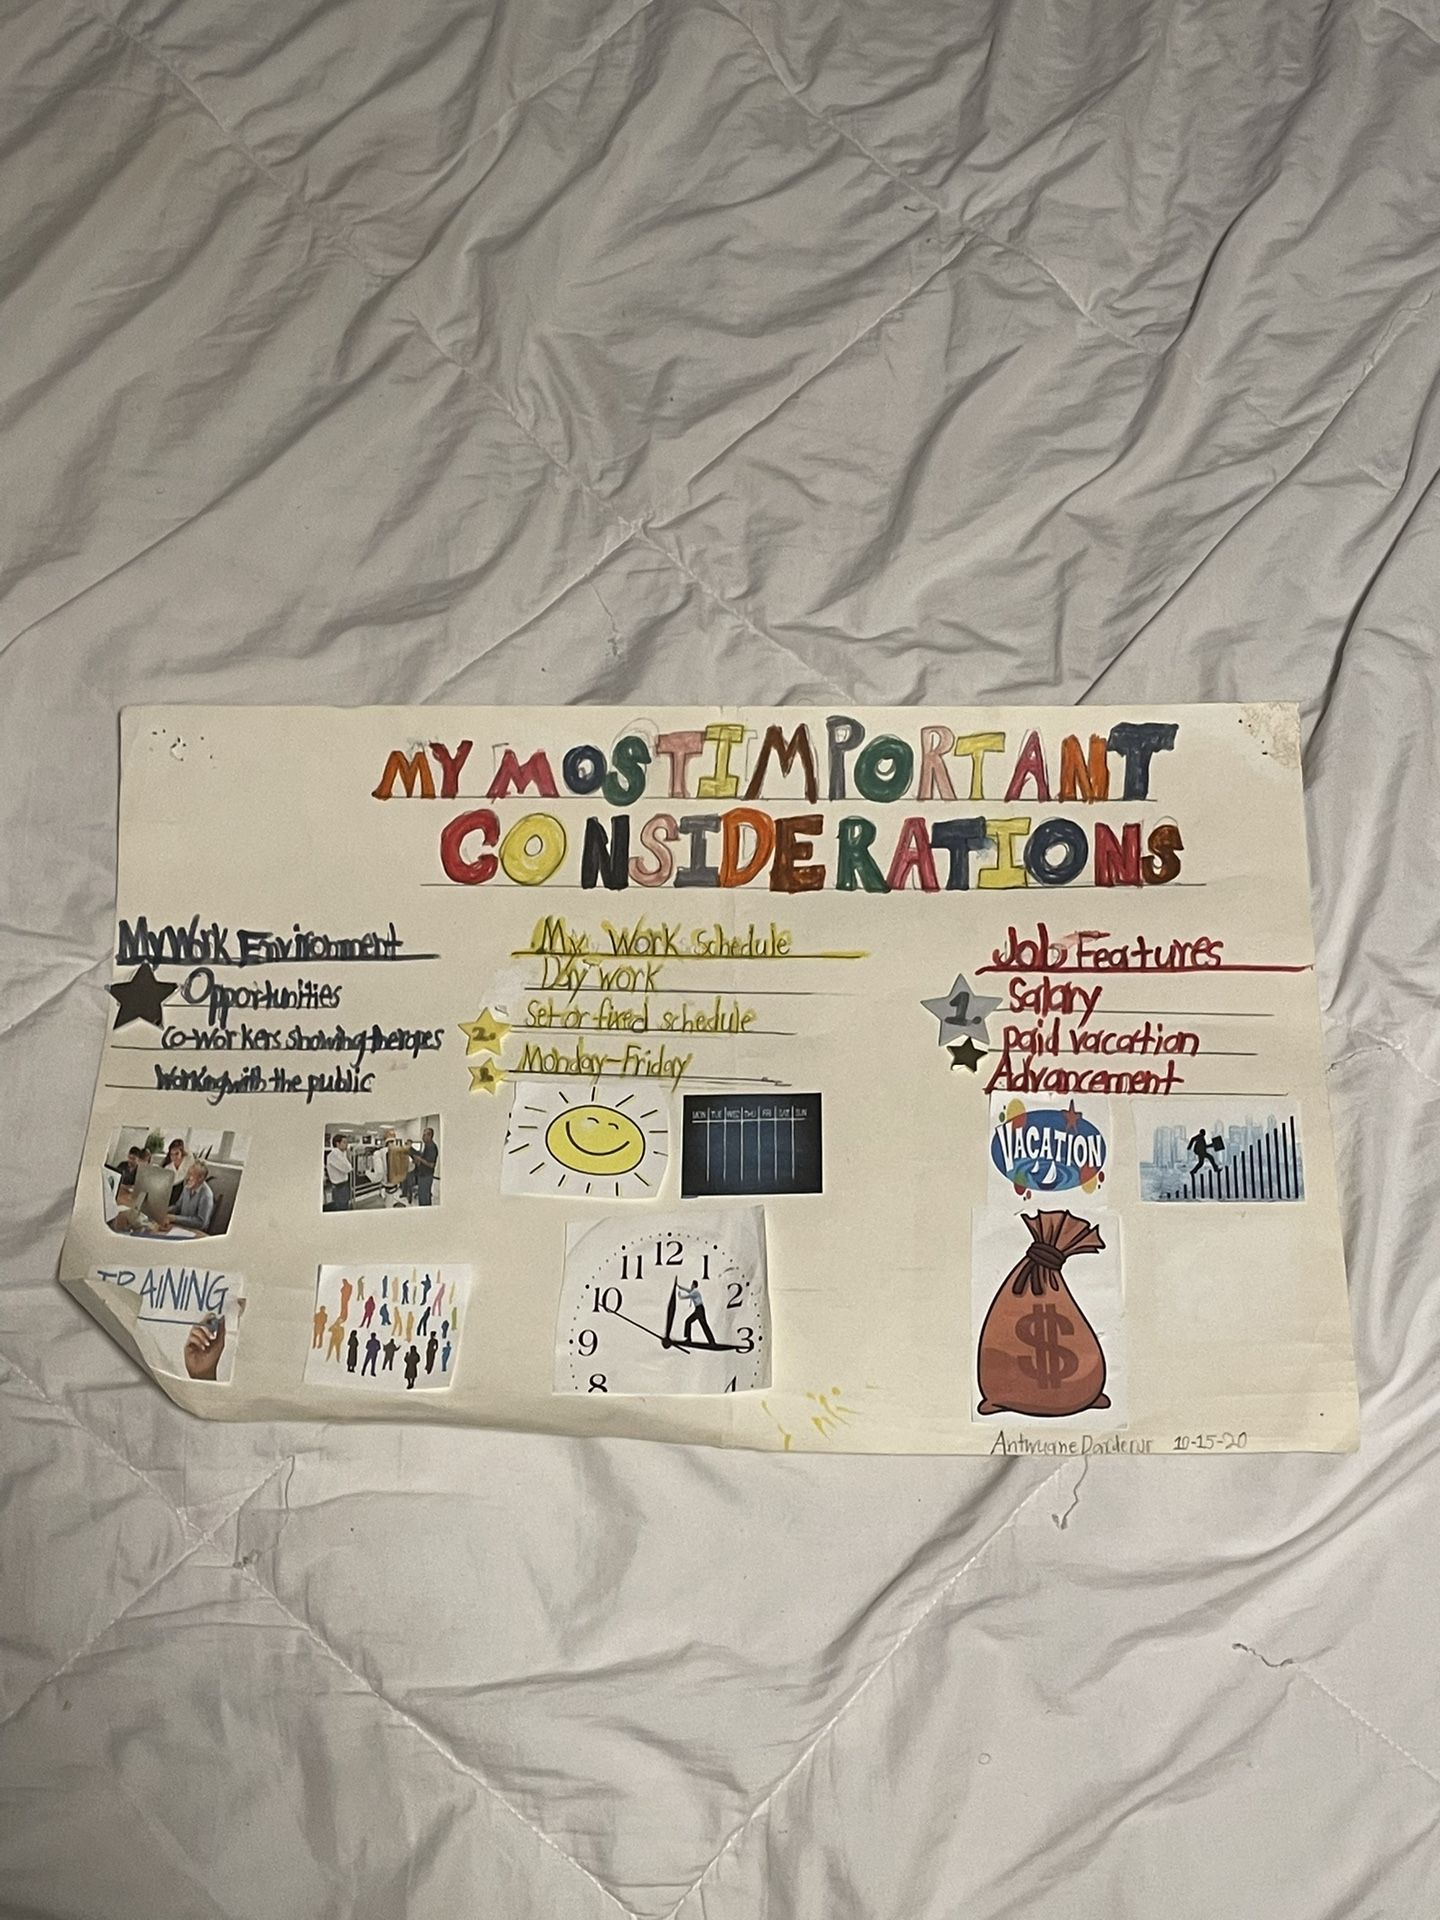 MY MOST IMPORTANT
CONSIDERATIONS
My Work Environment
Opportunities
Co-workers showing the ropes
Working with the public
TRAINING
My Work Schedule
Day Work
2. Set or fixed schedule
Monday-Friday
MON TUE WED THU FRI SAT SUN
11 12 1
10 2
9 3
8 4
Job Features
1. Salary
paid vacation
Advancement
VACATION
$
10-15-20